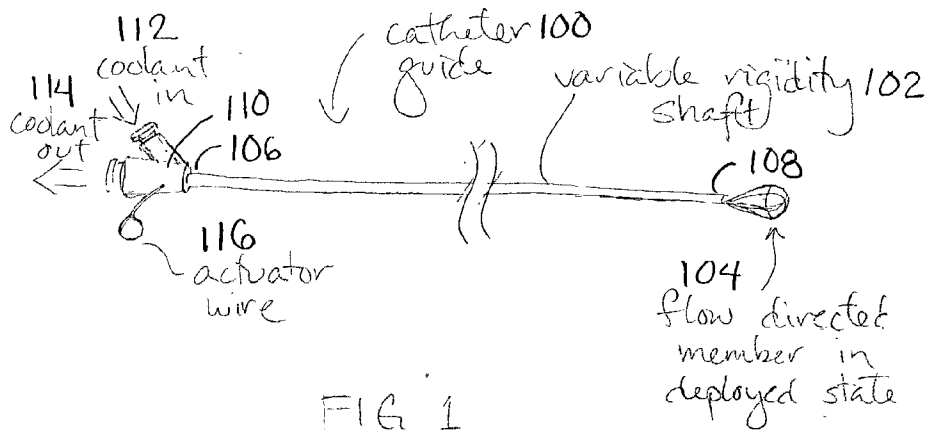 112
coolant
in
114
coolant
out
110
106
catheter 100
guide
variable rigidity 102
shaft
108
116
actuator
wire
104
flow directed
member in
deployed state
FIG 1